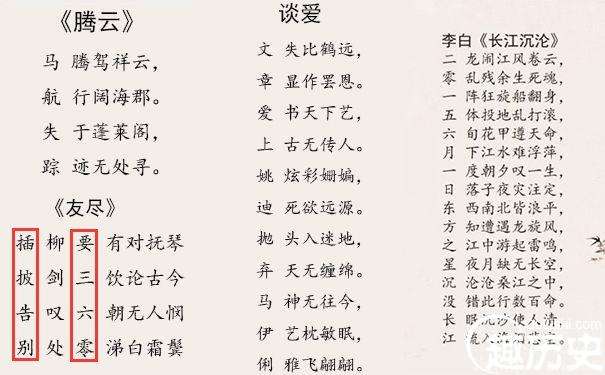 《腾云》
马 腾驾祥云，
航 行阔海郡。
失 于蓬莱阁，
踪 迹无处寻。
《友尽》
插 柳 要 有对抚琴
披 剑 三 饮论古今
告 叹 六 朝无人悯
别 处 零 涕白霜鬓
谈爱
文 失比鹤远，
章 显作罢恩。
爱 书天下艺，
上 古无传人。
姚 炫彩姗媥，
迪 死欲远源。
抛 头入迷地，
弃 天无缠绵。
马 神无往今，
伊 艺枕敏眠，
俐 雅飞翩翩。
李白《长江沉沦》
二 龙闹江风卷云，
零 乱残余生死魂，
一 阵狂旋船翻身，
五 体投地乱打滚，
六 旬花甲遵天命，
月 下江水难浮萍，
一 度朝夕叹一生，
日 落子夜灾注定，
东 西南北皆浪平，
方 知遭遇龙旋风，
之 江中游起雷鸣，
星 夜月缺无长空，
沉 沧沧桑江之中，
没 错此行数百命。
长 眠沉沙使人清，
江 流入海
趣历史